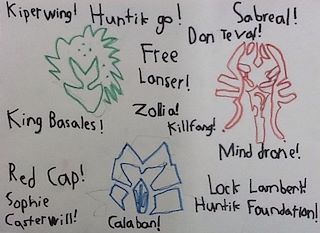 Kiperwing! Huntik go! Sabreal!
Don Teval!
Free
Lonser!
Zollia!
King Basales!
Killfang!
Mind drone!
Red Cap!
Sophie
Casterwill!
Calaban!
Lock Lambert!
Huntik Foundation!